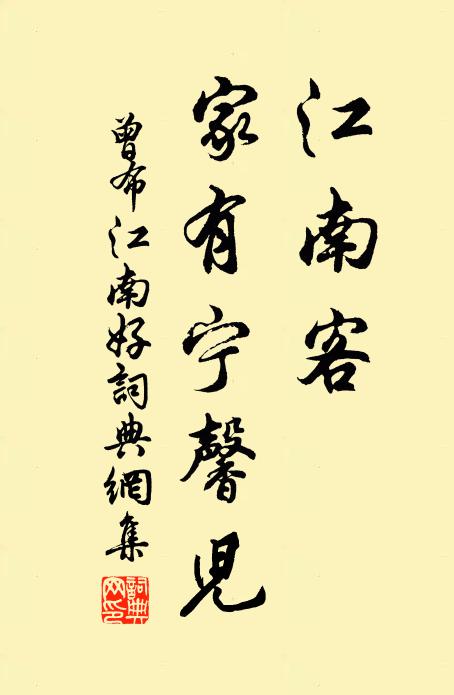 江南客
家有宁馨児
曾布江南好詞典網集
詞典网印